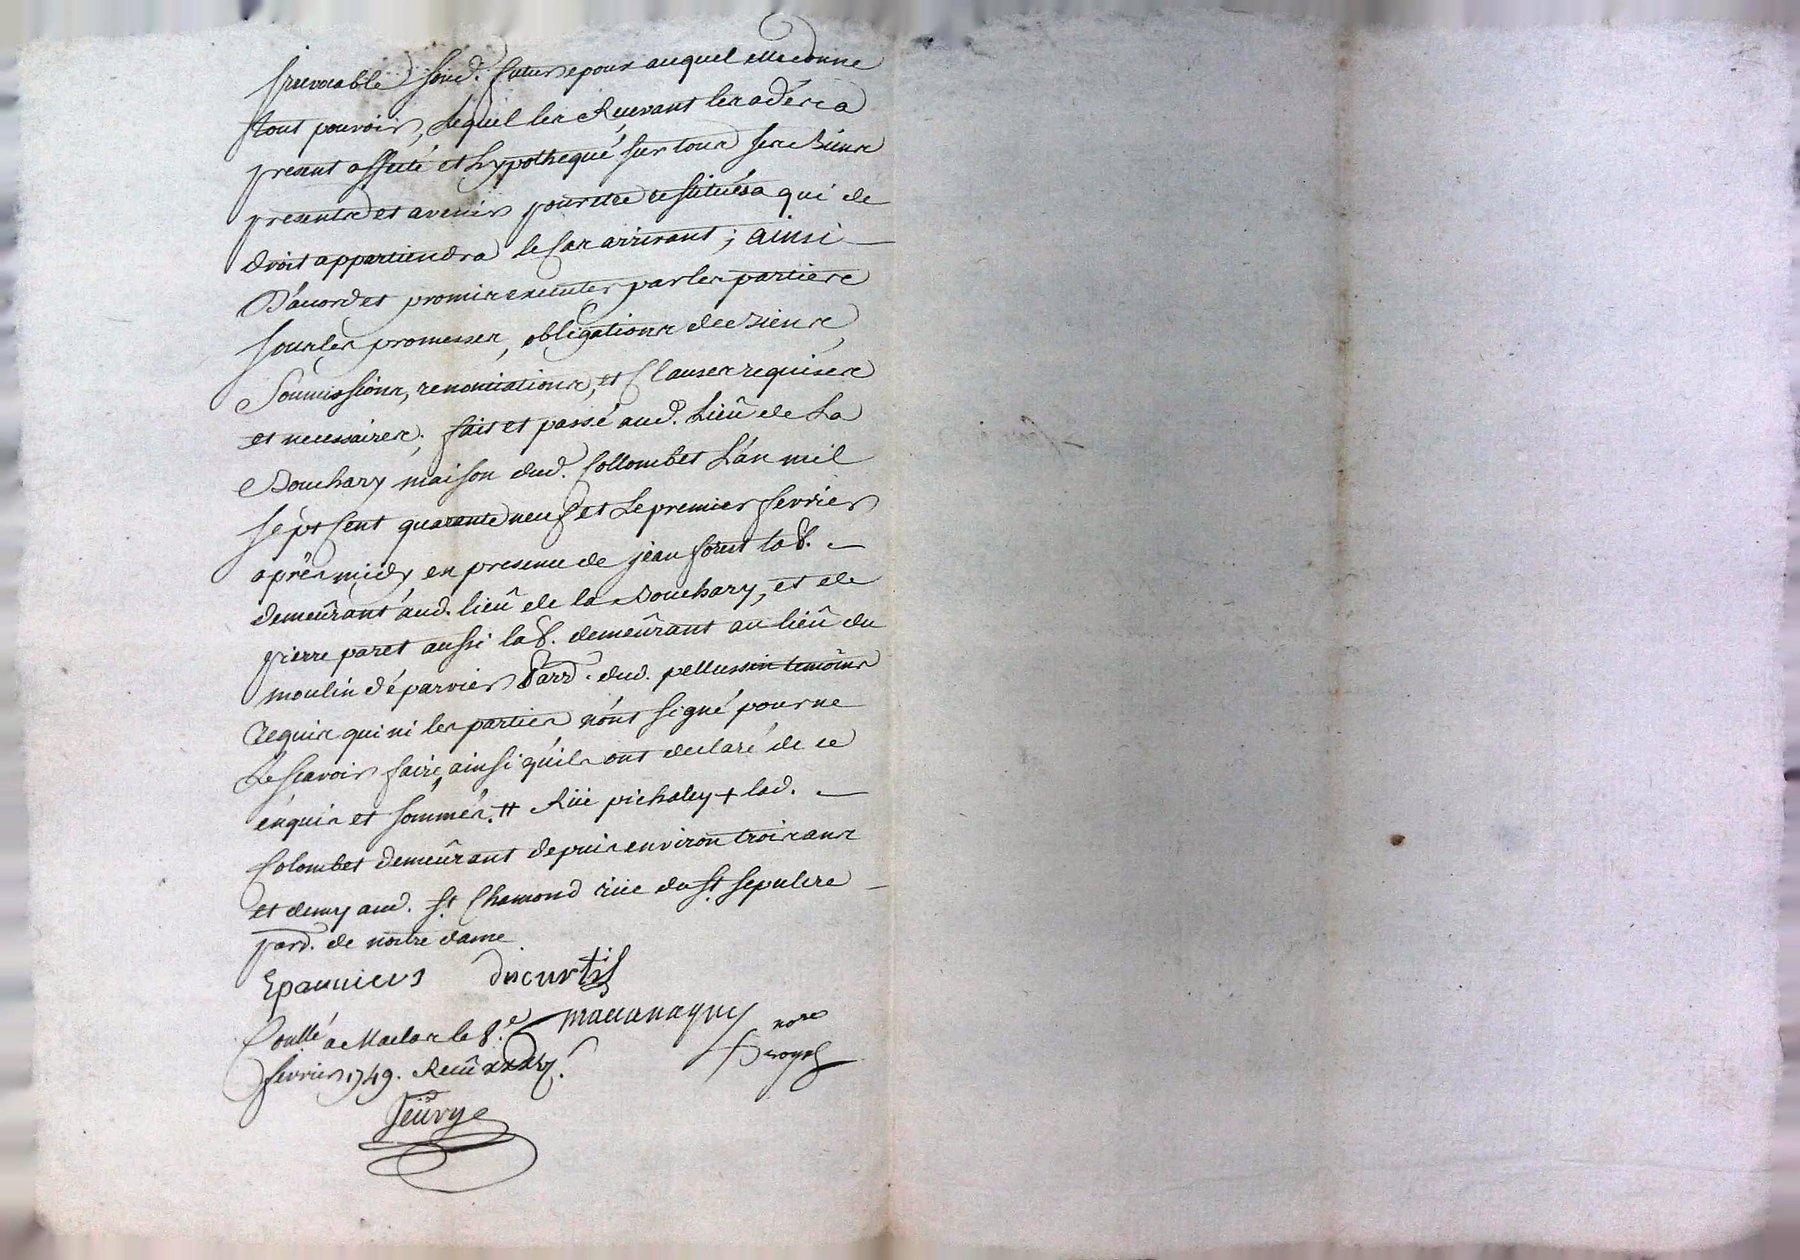 irrevocable sond. futur epoux auquel elle donne
tout pouvoir, lequel les recevant les a dés à
present affecté et hypothequé sur tous ses biens
presents et avenir pour etre restitués a qui de
droit appartiendra le cas arrivant ; ainsi
d'acord et promis executer par les parties
sous les promesses, obligations de biens
soumissions, renontiations, et clauses requises
et necessaires. fait et passé aud. lieû de La
Bouchary maison dud. Collombet L'an mil
sept cent quarante neuf et le premier fevrier
aprés midy en presence de jean forest lab.
demeûrant aud. lieû de la Bouchary, et de
pierre paret aussi lab. demeûrant au lieû du
moulin d'éparvier parr. dud. pellussin temoins
requis qui ni les parties n'ont signé pour ne
le scavoir faire, ainsi qu'ils ont declaré de ce
enquis et sommés. # Rüe pichaley + lad.
Colombet demeûrant depuis environ trois ans
et demy aud. St. Chamond rüe du St. sepulcre
parr. de nottre dame
Eparviers ducurtil
Conllé a Maclas le 8.e
fevrier 1749. Receû
nore royal